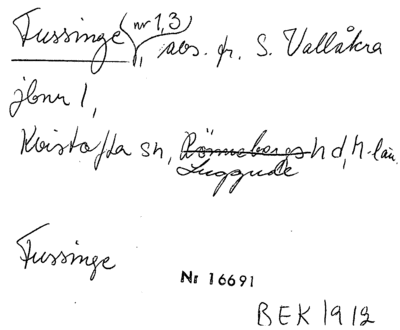 Fussinge (nr 1,3), sos. fr. S. Vallåkra
jbnr 1,
Kvistofta sn, Rönnebergs hd, M-län.
Luggude
Fussinge
Nr 16691
BEK 1912